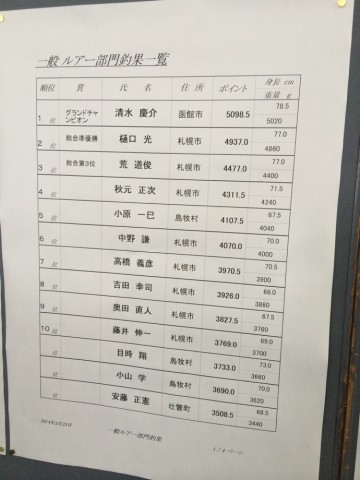 一般 ルアー部門釣果一覧
順位 賞 氏 名 住 所 ポイント 身長 cm 重量 g
1 位 グランドチャンピオン 清水 慶介 函館市 5098.5 78.5 5020
2 位 総合準優勝 樋口 光 札幌市 4937.0 77.0 4860
3 位 総合第3位 荒 道俊 札幌市 4477.0 77.0 4400
4 位 秋元 正次 札幌市 4311.5 71.5 4240
5 位 小原 一巳 島牧村 4107.5 67.5 4040
6 位 中野 謙 札幌市 4070.0 70.0 4000
7 位 高橋 義彦 札幌市 3970.5 70.5 3900
8 位 吉田 幸司 札幌市 3926.0 66.0 3860
9 位 奥田 直人 札幌市 3827.5 67.5 3760
10 位 藤井 伸一 札幌市 3769.0 69.0 3700
位 目時 翔 島牧村 3733.0 73.0 3660
位 小山 学 島牧村 3690.0 70.0 3620
位 安藤 正憲 壮瞥町 3508.5 68.5 3440
一般ルアー部門釣果
1 / 4 ページ